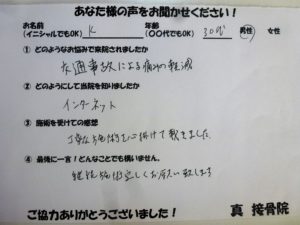 あなた様の声をお聞かせください!
お名前 年齢
(イニシャルでもOK) K (○○代でもOK) 30代 男性 女性
① どのようなお悩みで来院されましたか
交通事故による痛みの軽減
② どのようにして当院を知りましたか
インターネット
③ 施術を受けての感想
丁寧な施術を心掛けて頂きました
④ 最後に一言!どんなことでも構いません。
継続施術宜しくお願い致します
ご協力ありがとうございました! 真 接骨院